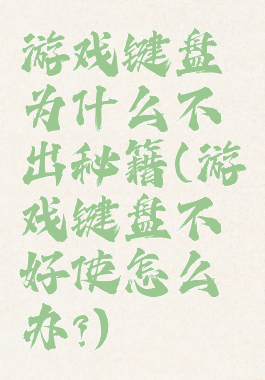 游戏键盘
为什么不
出秘籍(游
戏键盘不
好使怎么
办?)